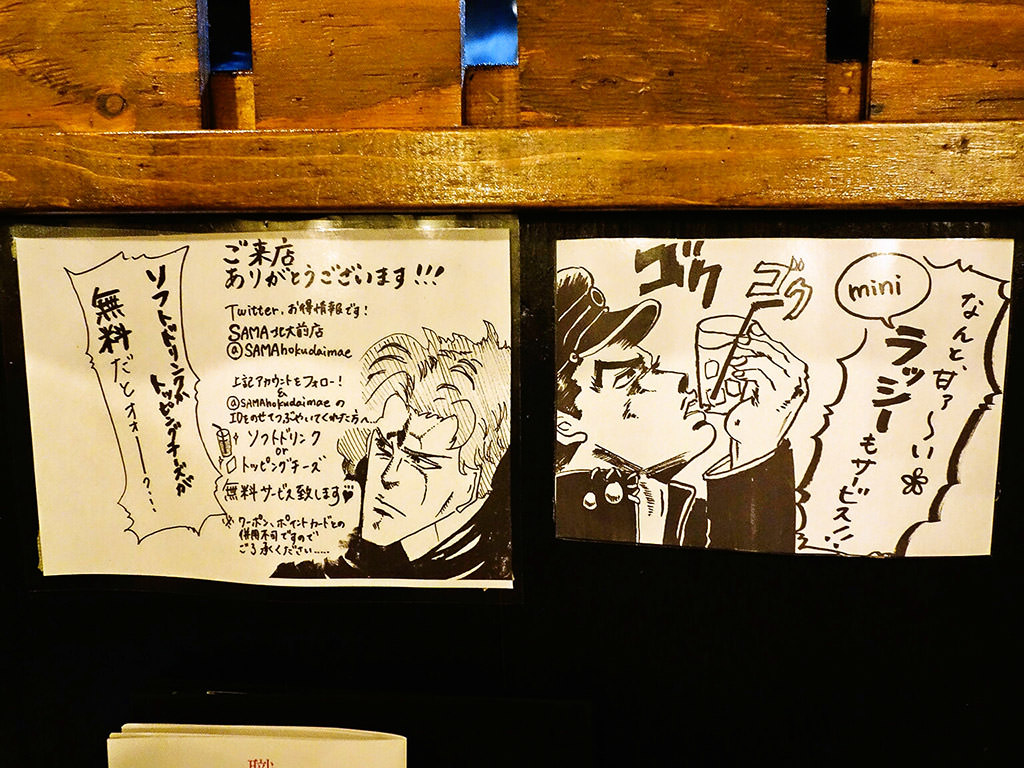 ご来店
ありがとうございます!!!
Twitter、お得情報です!
SAMA北大前店
@SAMAhokudaimae
上記アカウントをフォロー!
&
@SAMAhokudaimaeの
IDをのせてつぶやいてくれた方へ…
ソフトドリンク
or
トッピングチーズ
無料サービス致します♥
※クーポン、ポイントカードとの
併用不可ですので
ご了承ください……
ソフトドリンクか
トッピングチーズが
無料だとォォー?…
ゴク
ゴク
mini
なんと、甘ァ〜い
ラッシーもサービス!!